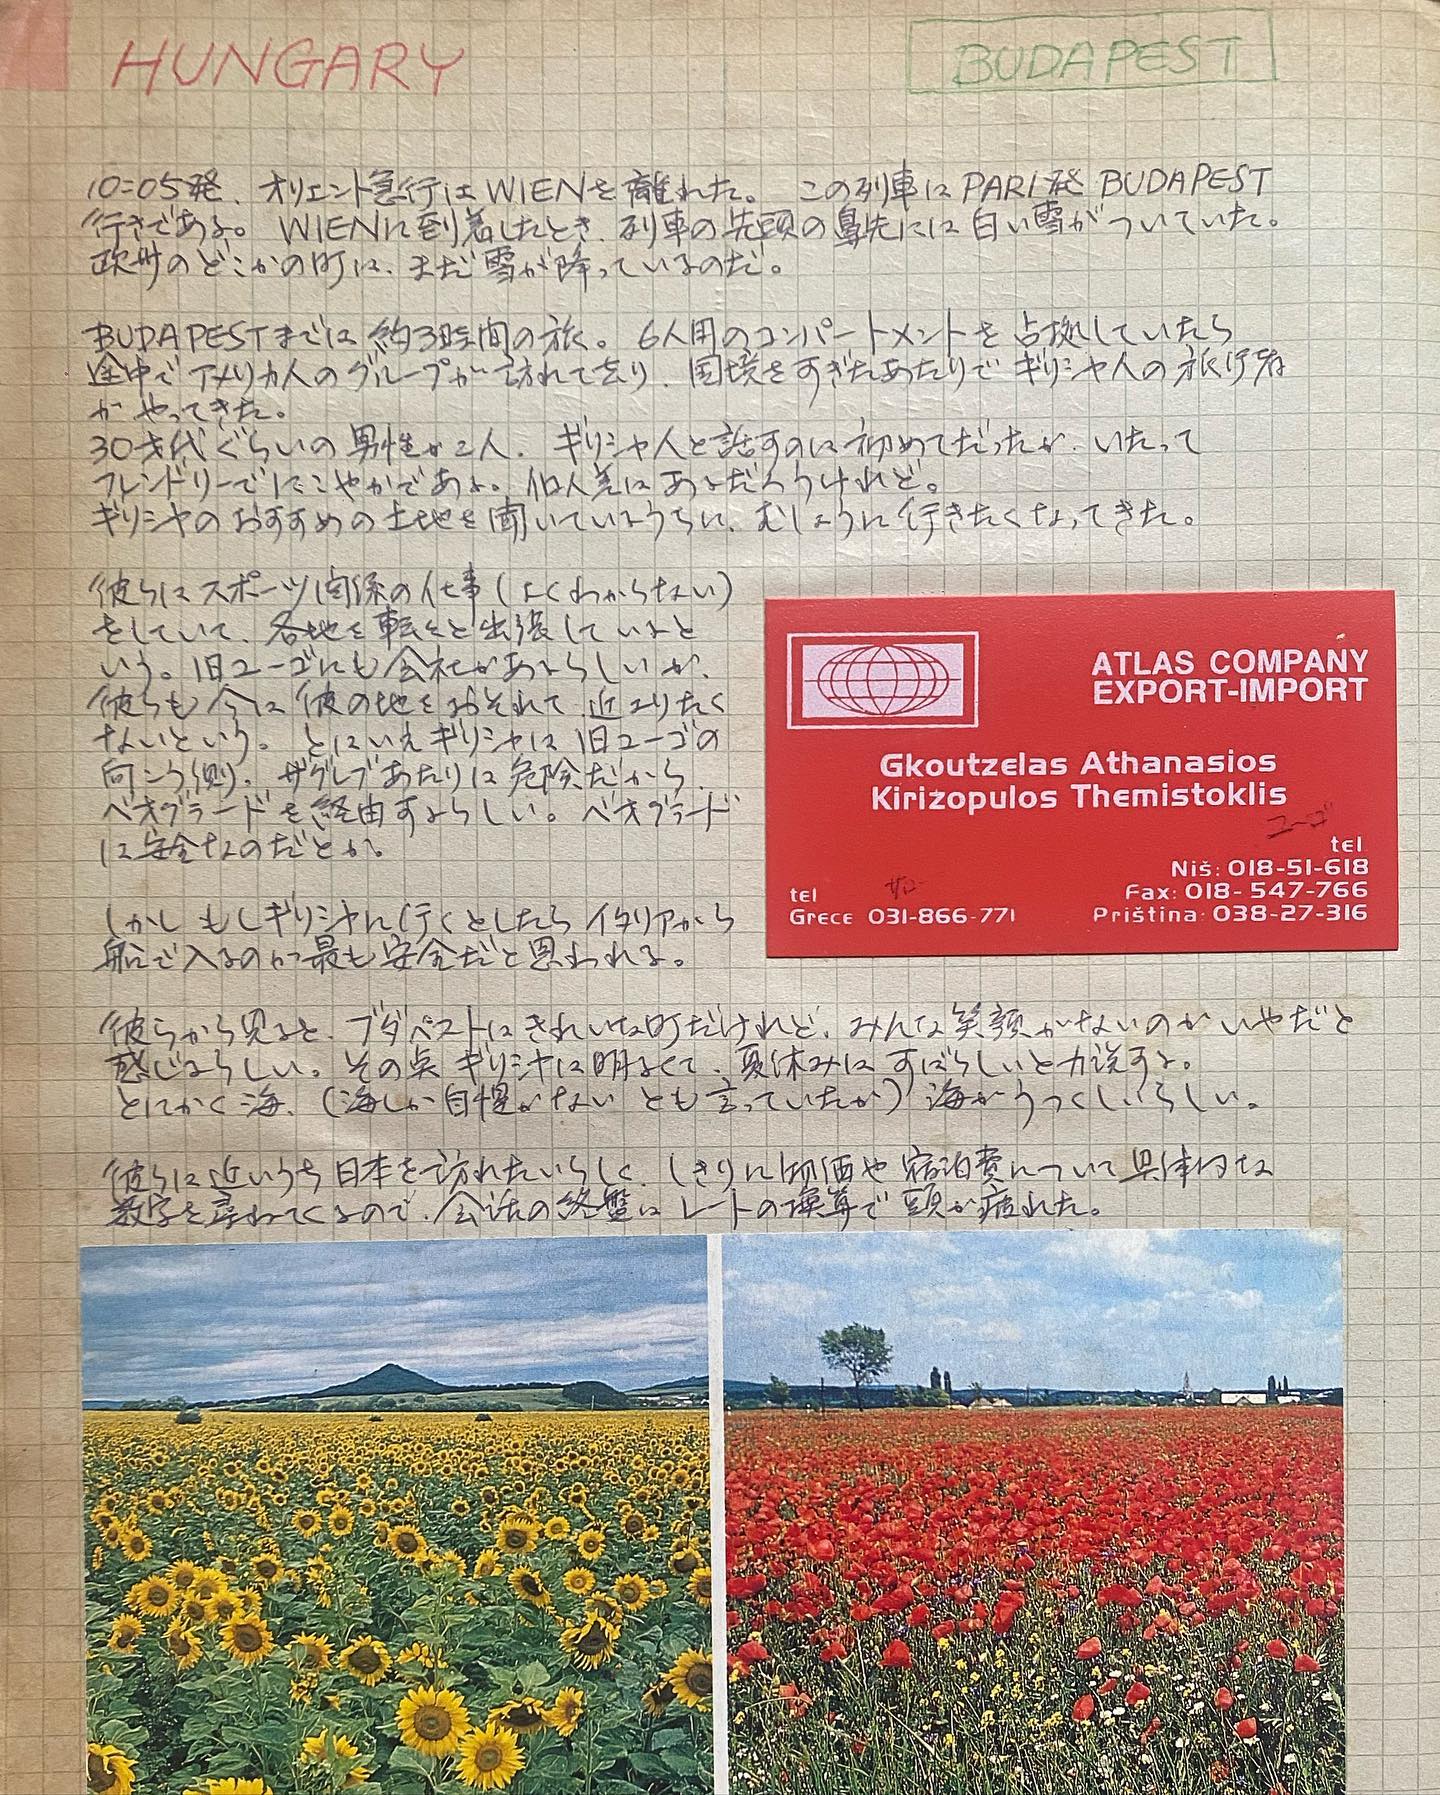 HUNGARY
BUDAPEST
10:05発、オリエント急行はWIENを離れた。この列車はPARI発BUDAPEST
行きである。WIENに到着したとき、列車の先頭の鼻先には白い雪がついていた。
欧州のどこかの町は、まだ雪が降っているのだ。
BUDAPESTまでは約3時間の旅。6人用のコンパートメントを占拠していたら
途中でアメリカ人のグループが訪れて去り、国境をすぎたあたりでギリシャ人の旅行者
がやってきた。
30才代ぐらいの男性が2人。ギリシャ人と話すのは初めてだったが、いたって
フレンドリーでにこやかである。個人差はあるだろうけれど。
ギリシャのおすすめの土地を聞いているうちに、むしょうに行きたくなってきた。
彼らはスポーツ関係の仕事(よくわからない)
をしていて、各地を転々と出張していると
いう。旧ユーゴにも会社があるらしいが、
彼らも今は彼の地をおそれて近よりたく
ないという。とはいえギリシャは旧ユーゴの
向こう側、ザグレブあたりは危険だから
ベオグラードを経由するらしい。ベオグラード
は安全なのだとか。
しかしもしギリシャに行くとしたらイタリアから
船で入るのが最も安全だと思われる。
彼らから見ると、ブダペストはきれいな町だけれど、みんな笑顔がないのがいやだと
感じるらしい。その点ギリシャは明るくて、夏休みはすばらしいと力説する。
とにかく海、(海しか自慢がないとも言っていたが)海がうつくしいらしい。
彼らは近いうち日本を訪れたいらしく、しきりに物価や宿泊費について具体的な
数字を尋ねてくるので、会話の終盤はレートの換算で頭が疲れた。
ATLAS COMPANY
EXPORT-IMPORT
Gkoutzelas Athanasios
Kirizopulos Themistoklis
ユーゴ
tel
Niš: 018-51-618
Fax: 018-547-766
Priština: 038-27-316
tel
Grece 031-866-771